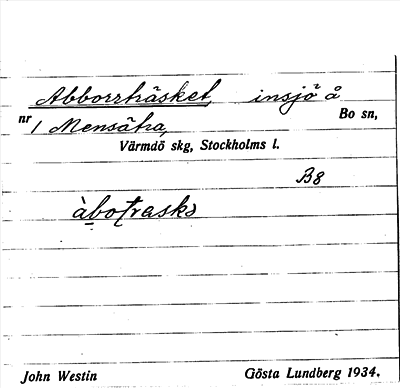 Abborrträsket, insjö å
nr 1 Mensätra, Bo sn,
Värmdö skg, Stockholms l.
B8
àbotrasks
John Westin Gösta Lundberg 1934.